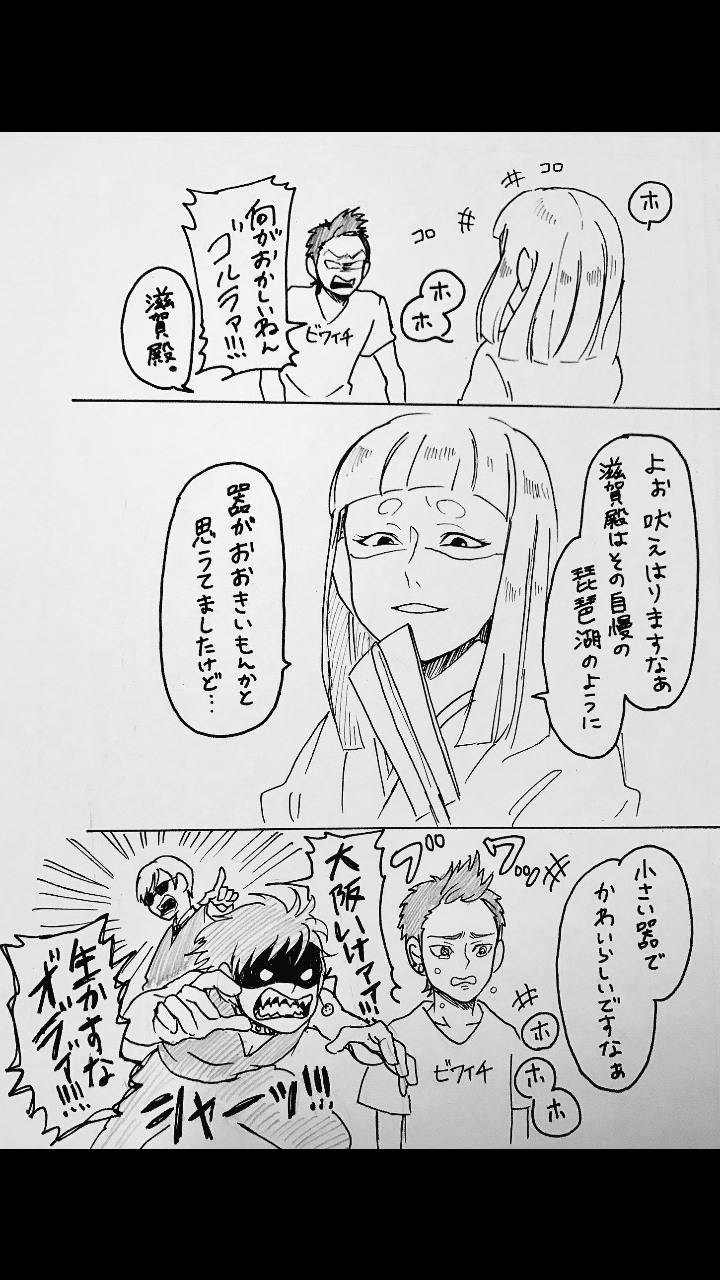 ホ
コロ
コロ
ホ
ホ
何がおかしいねん
ゴルラァ!!!
ビワイチ
滋賀殿。
よお吠えはりますなぁ
滋賀殿はその自慢の
琵琶湖のように
器がおおきいもんかと
思うてましたけど…
小さい器で
かわいらしいですなぁ
ホ
ホ
ホ
ブワッ
ビワイチ
大阪いけァァ!!!
生かすな
オラァ!!!!
シャーッ!!!